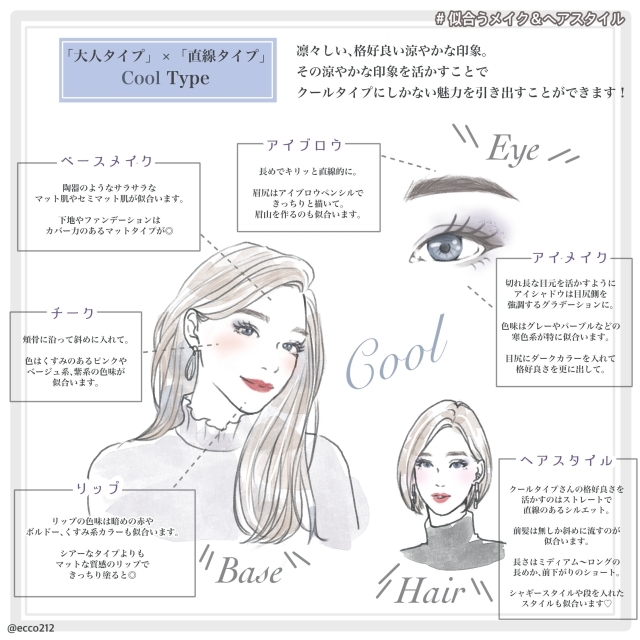 # 似合うメイク＆ヘアスタイル
「大人タイプ」×「直線タイプ」
Cool Type
凛々しい、格好良い涼やかな印象。
その涼やかな印象を活かすことで
クールタイプにしかない魅力を引き出すことができます！
Eye
アイブロウ
長めでキリッと直線的に。
眉尻はアイブロウペンシルで
きっちりと描いて。
眉山を作るのも似合います。
ベースメイク
陶器のようなサラサラな
マット肌やセミマット肌が似合います。
下地やファンデーションは
カバー力のあるマットタイプが◎
アイメイク
切れ長な目元を活かすように
アイシャドウは目尻側を
強調するグラデーションに。
色味はグレーやパープルなどの
寒色系が特に似合います。
目尻にダークカラーを入れて
格好良さを更に出して。
チーク
頬骨に沿って斜めに入れて。
色はくすみのあるピンクや
ベージュ系、紫系の色味が
似合います。
Cool
ヘアスタイル
クールタイプさんの格好良さを
活かすのはストレートで
直線のあるシルエット。
前髪は無しか斜めに流すのが
似合います。
長さはミディアム〜ロングの
長めか、前下がりのショート。
シャギースタイルや段を入れた
スタイルも似合います♡
リップ
リップの色味は暗めの赤や
ボルドー、くすみ系カラーも似合います。
シアーなタイプよりも
マットな質感のリップで
きっちり塗ると◎
Base
Hair
@ecco212